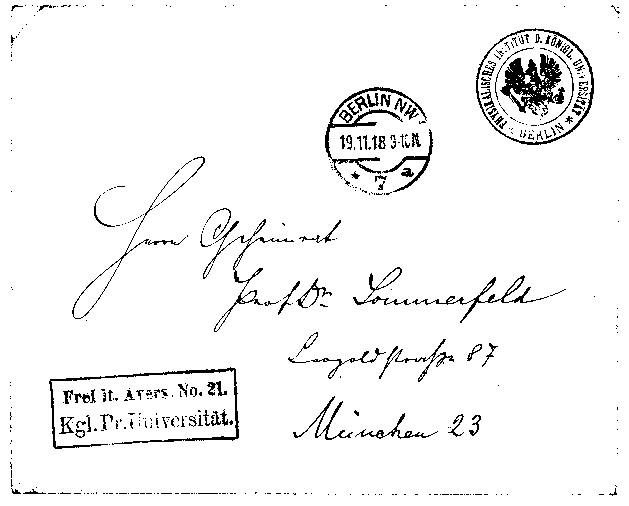 PHYSIKALISCHES INSTITUT D. KÖNIGL. UNIVERSITÄT * BERLIN *
BERLIN NW
19.11.18 9-10.N.
* 7 a
Herrn Geheimrat
Prof. Dr. Sommerfeld
Leopoldstraße 87
München 23
Frei lt. Avers. No. 21.
Kgl. Pr. Universität.